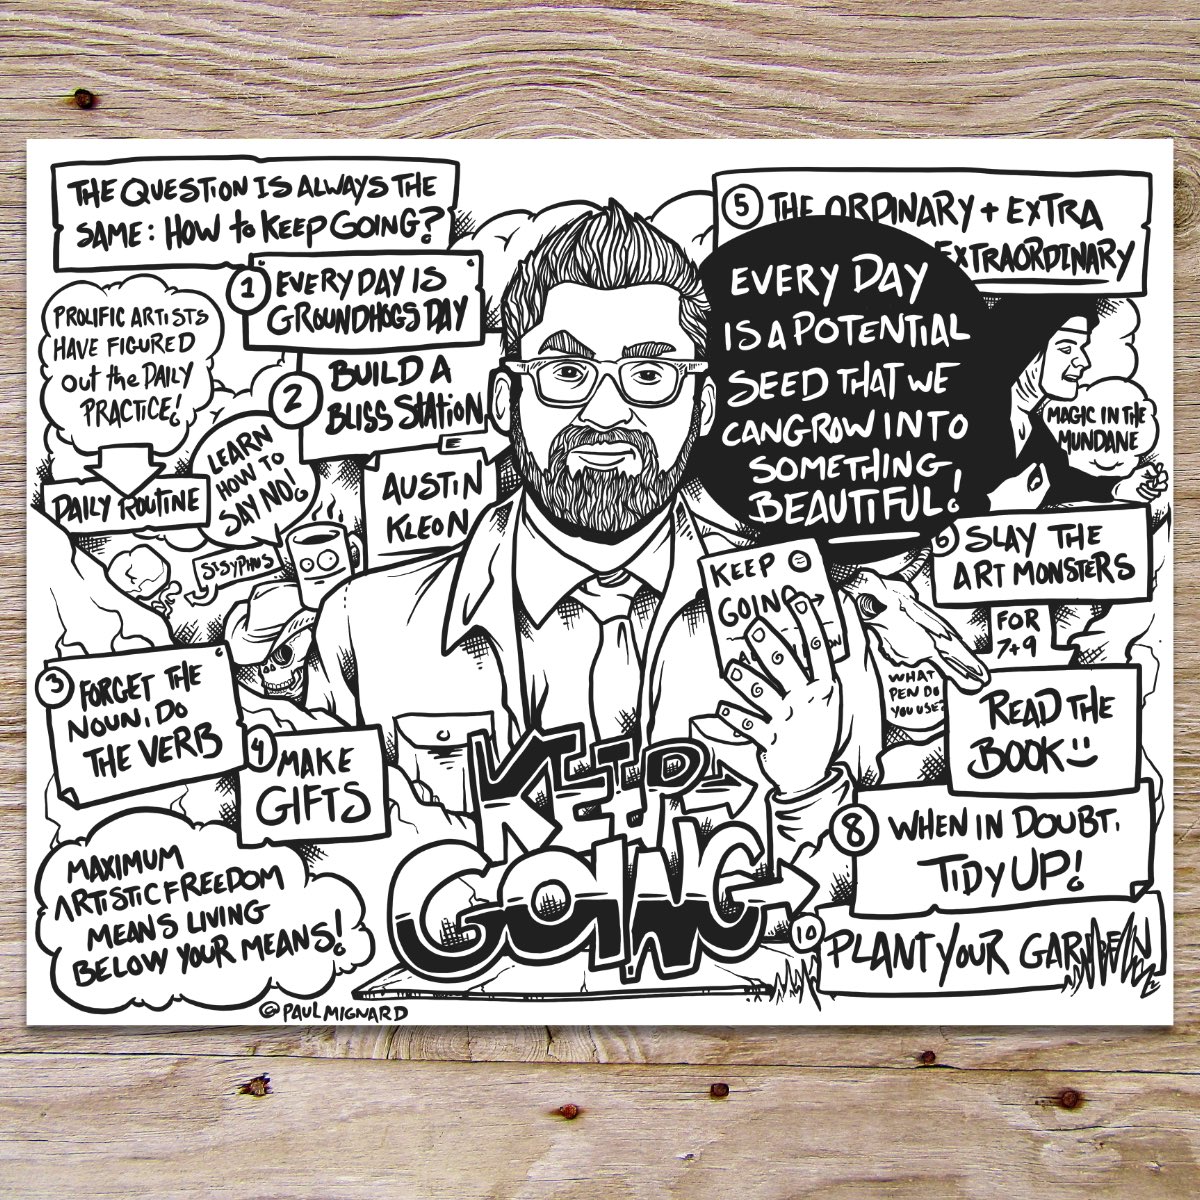 THE QUESTION IS ALWAYS THE
SAME: HOW to KEEP GOING?
1
EVERY DAY IS
GROUNDHOGS DAY
PROLIFIC ARTISTS
HAVE FIGURED
Out the DAILY
PRACTICE!
DAILY ROUTINE
2
BUILD A
BLISS STATION
LEARN
HOW TO
SAY NO!
AUSTIN
KLEON
SISYPHUS
3
FORGET THE
NOUN, DO
THE VERB
4
MAKE
GIFTS
MAXIMUM
ARTISTIC FREEDOM
MEANS LIVING
BELOW YOUR MEANS!
@PAULMIGNARD
KEEP
GOING
KEEP
GOING
5
THE ORDINARY + EXTRA
EXTRAORDINARY
EVERY DAY
IS A POTENTIAL
SEED THAT WE
CAN GROW INTO
SOMETHING
BEAUTIFUL!
MAGIC IN THE
MUNDANE
6
SLAY THE
ART MONSTERS
FOR
7+9
WHAT
PEN DO
YOU USE?
READ THE
BOOK
8
WHEN IN DOUBT,
TIDY UP!
10
PLANT YOUR GARDEN